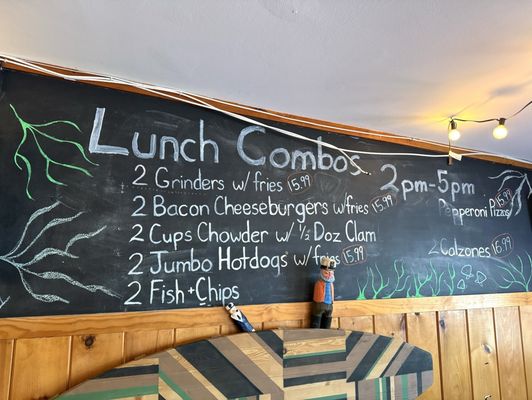 Lunch Combos 2pm-5pm
2 Grinders w/ fries 15.99
2 Bacon Cheeseburgers w/fries 15.99
2 Cups Chowder w/ 1/2 Doz Clam
2 Jumbo Hotdogs w/fries 15.99
2 Fish + Chips
Pepperoni Pizzas 15.99
2 Calzones 15.99